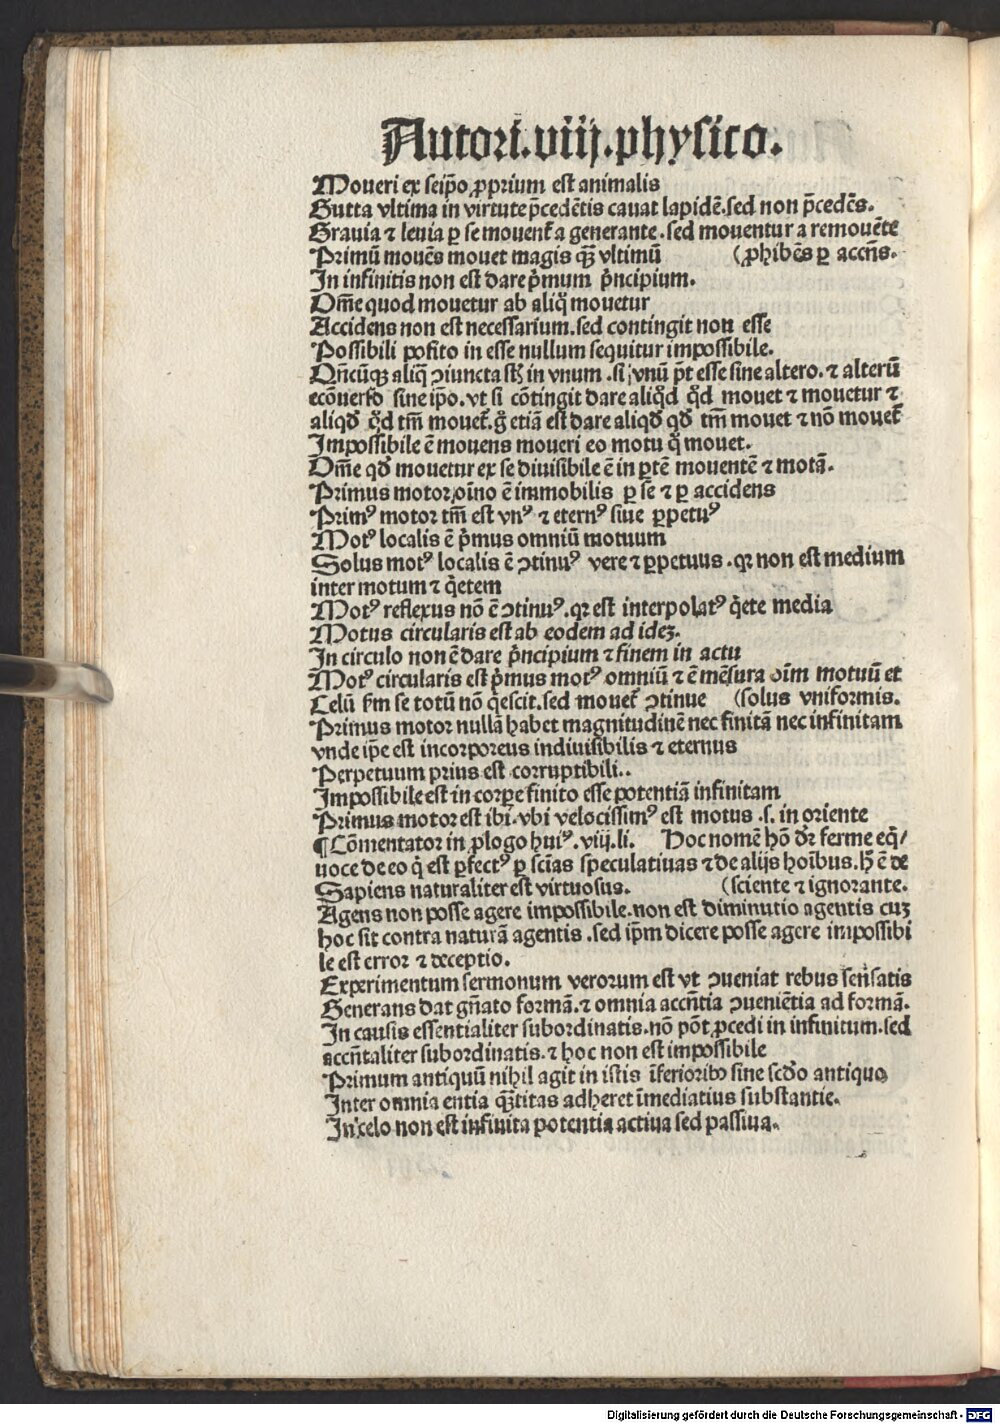 Autori.viij.physico.
Moueri ex seip̄o ꝓprium est animalis
Gutta vltima in virtute p̄cedētis cauat lapidē.sed non p̄cedēs.
Grauia ⁊ leuia ꝑ se mouent̄ a generante.sed mouentur a remouēte
Primū mouēs mouet magis qꝫ̄ vltimū (ꝓhibēs ꝑ accn̄s.
In infinitis non est dare p̄mum p̄ncipium.
Om̄e quod mouetur ab aliq̄ mouetur
Accidens non est necessarium.sed contingit non esse
Possibili posito in esse nullum sequitur impossibile.
Qn̄cūqꝫ aliq̄ ↄiuncta st̄ in vnum.si vnū pōt esse sine altero.⁊ alterū
ecōuerso sine ip̄o.vt si cōtingit dare aliqd̄ qd̄ mouet ⁊ mouetur ⁊
aliqd̄ qd̄ tm̄ mouet̄.g̊ etiā est dare aliqd̄ qd̄ tm̄ mouet ⁊ nō mouet̄
Impossibile ē mouens moueri eo motu q̊ mouet.
Om̄e qd̄ mouetur ex se diuisibile ē in ꝑtē mouentē ⁊ motā.
Primus motor oīno ē immobilis ꝑ se ⁊ ꝑ accidens
Primꝰ motor tm̄ est vnꝰ ⁊ eternꝰ siue ꝑpetuꝰ
Motꝰ localis ē p̄mus omniū motuum
Solus motꝰ localis ē ↄtinuꝰ vere ⁊ ꝑpetuus.qꝛ non est medium
inter motum ⁊ q̄etem
Motꝰ reflexus nō ē ↄtinuꝰ.qꝛ est interpolatꝰ q̄ete media
Motus circularis est ab eodem ad ideꝫ.
In circulo non ē dare p̄ncipium ⁊ finem in actu
Motꝰ circularis est p̄mus motꝰ omniū ⁊ ē mēsura oīm motuū et
Celū fm se totū nō q̄escit.sed mouet̄ ↄtinue (solus vniformis.
Primus motor nullā habet magnitudinē nec finitā nec infinitam
vnde ip̄e est incorporeus indiuisibilis ⁊ eternus
Perpetuum prius est corruptibili..
Impossibile est in corꝑe finito esse potentiā infinitam
Primus motor est ibi.vbi velocissimꝰ est motus .s. in oriente
¶ Cōmentator in ꝓlogo huiꝰ.viij.li. Hoc nomē hō dr̄ ferme eq̄/
uoce de eo q̄ est ꝑfectꝰ ꝑ scīas speculatiuas ⁊ de alijs hoībus.h̄ ē de
Sapiens naturaliter est virtuosus. (sciente ⁊ ignorante.
Agens non posse agere impossibile.non est diminutio agentis cuꝫ
hoc sit contra naturā agentis.sed ip̄m dicere posse agere impossibi
le est error ⁊ deceptio.
Experimentum sermonum verorum est vt ↄueniat rebus sensatis
Generans dat gn̄ato formā.⁊ omnia accn̄tia ↄueniētia ad formā.
In causis essentialiter subordinatis.nō pōt ꝓcedi in infinitum.sed
accn̄taliter subordinatis.⁊ hoc non est impossibile
Primum antiquū nihil agit in istis īferioribꝰ sine scd̄o antiquo
Inter omnia entia qꝫ̄titas adheret īmediatius substantie.
In celo non est infinita potentia actiua sed passiua.
Digitalisierung gefördert durch die Deutsche Forschungsgemeinschaft - DFG